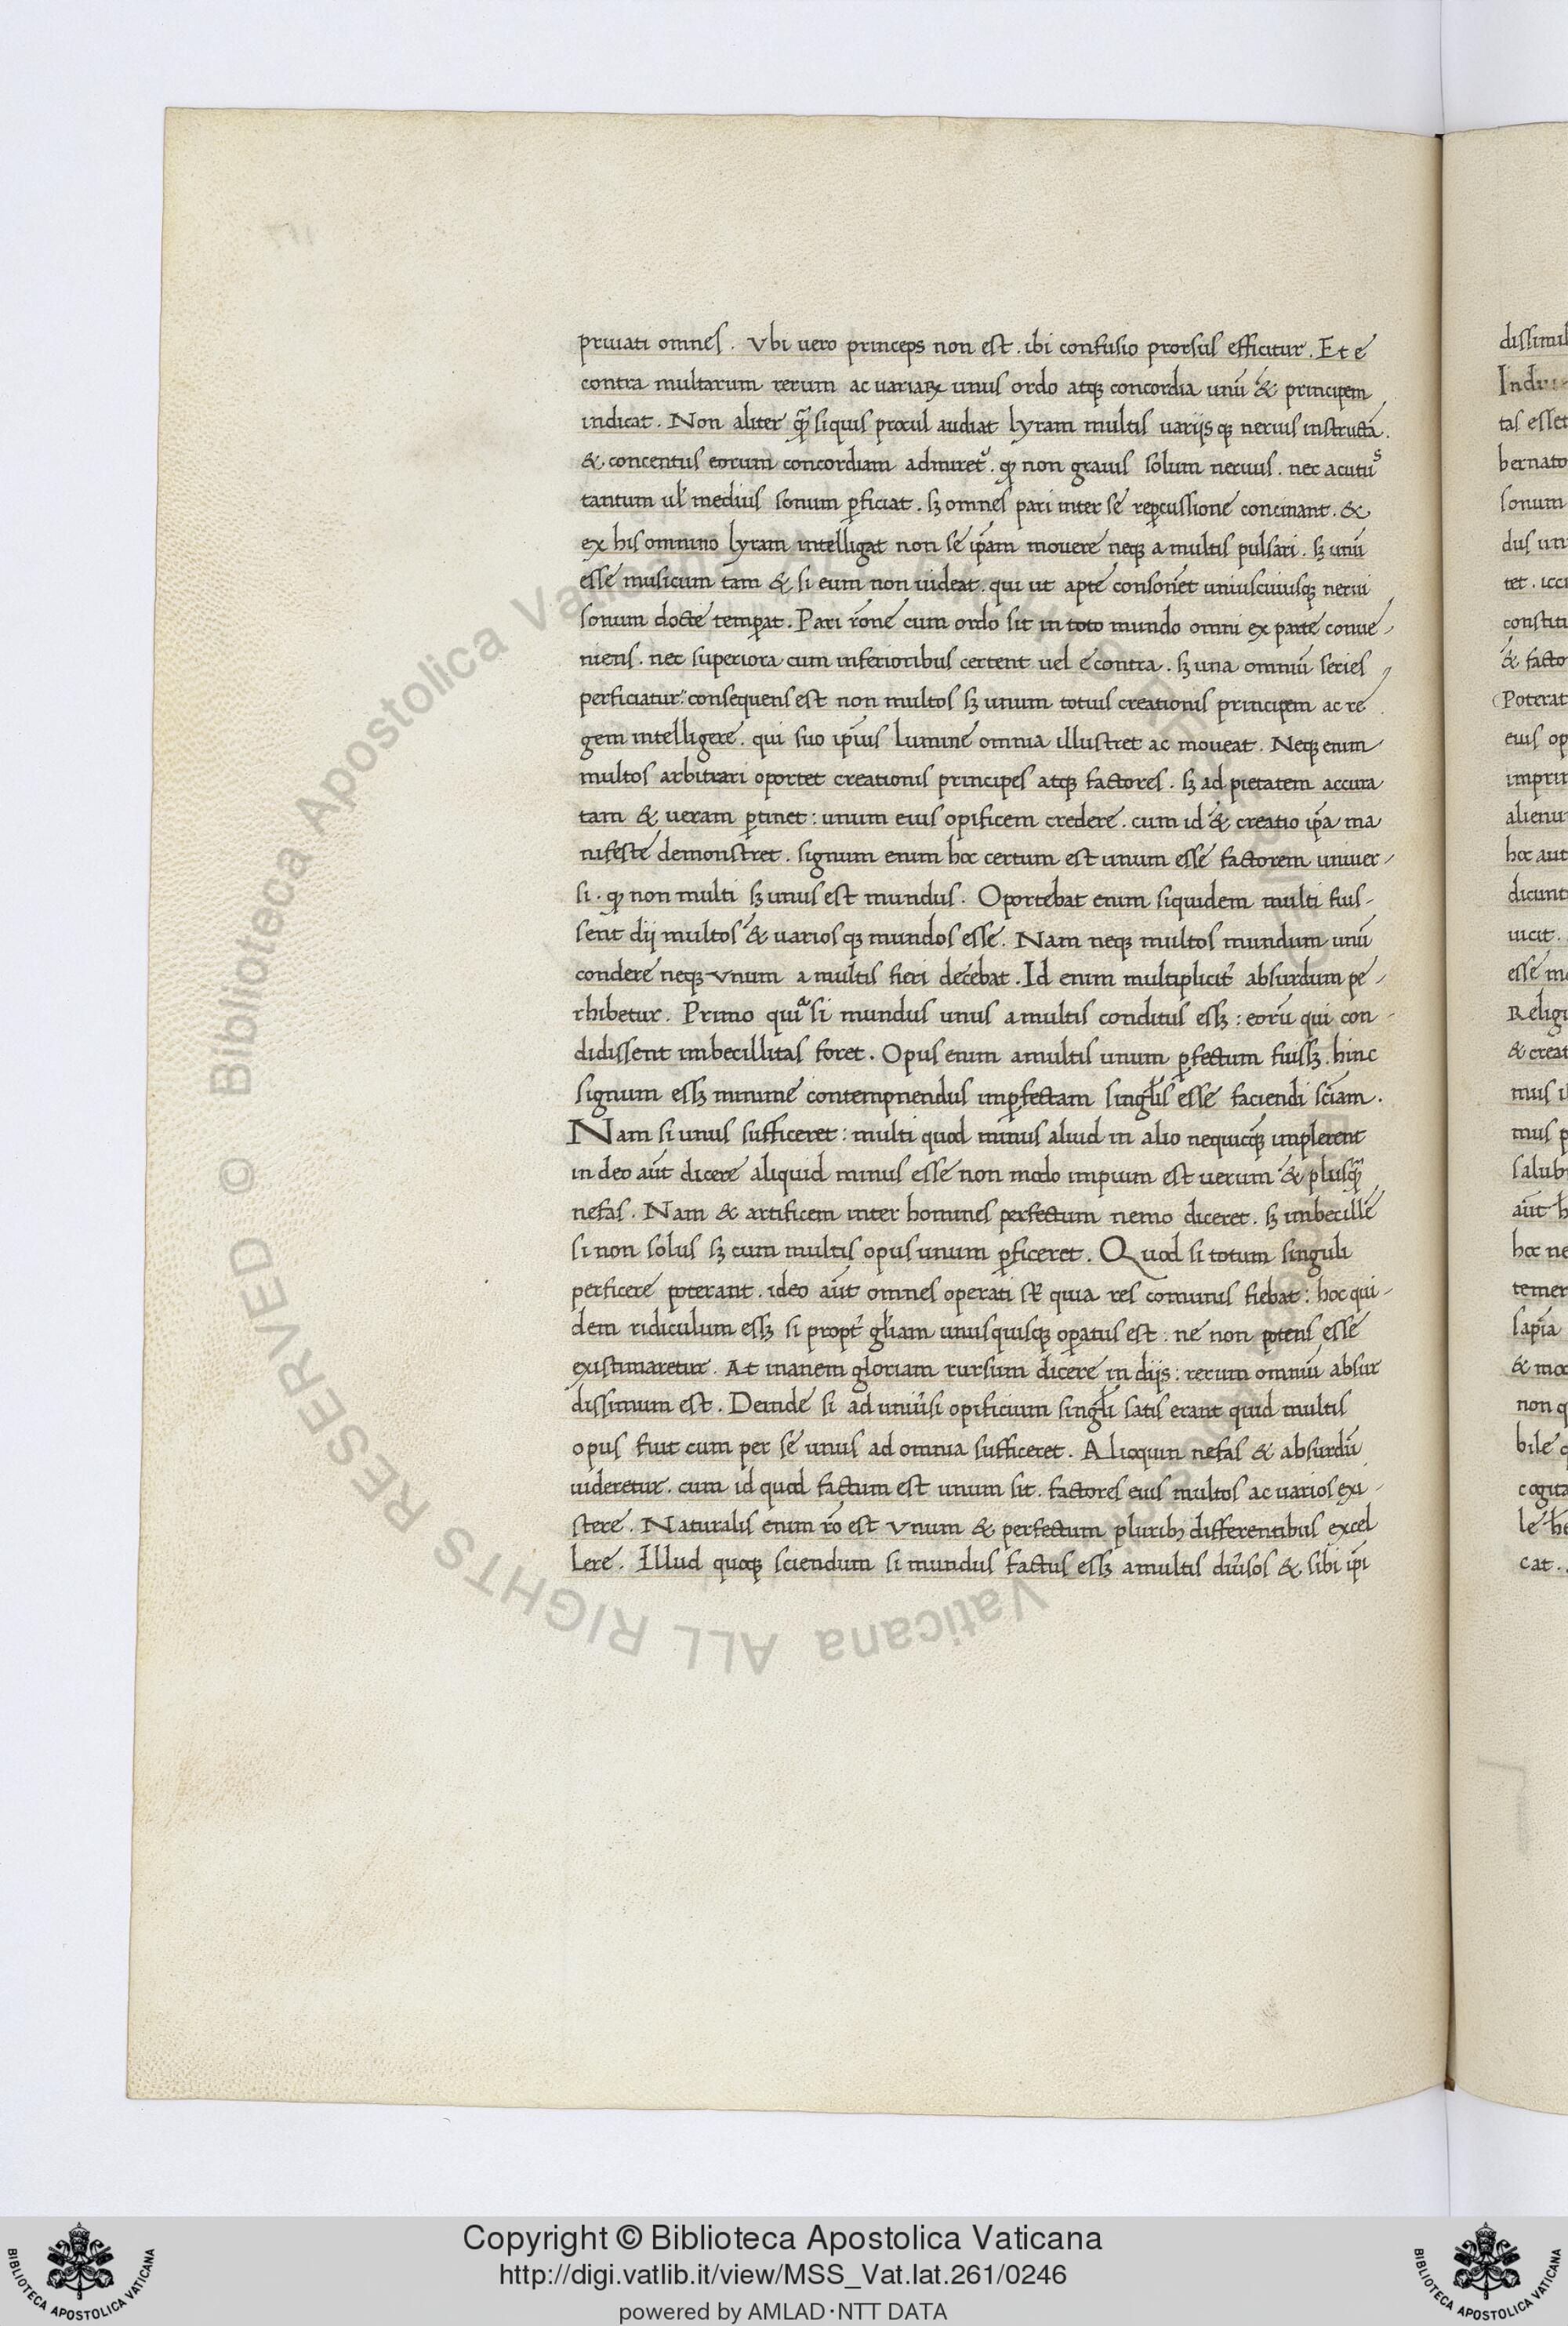 priuati omnes . Vbi uero princeps non est . ibi confusio prorsus efficitur . Et e
contra multarum rerum ac uariaꝝ unus ordo atqꝫ concordia unū & principem
indicat . Non aliter qᷓ̄ siquis procul audiat lyram multis uarijs qꝫ neruis instructā .
& concentus eorum concordiam admiret᷑ . ꝙ non grauis solum neruus . nec acutus
tantum ul̓ medius sonum ꝑficiat . sꝫ omnes pari inter se reꝑcussione concinant . &
ex his omnino lyram intelligat non se ip̄am mouere neqꝫ a multis pulsari . sꝫ unū
esse musicum tam & si eum non uideat . qui ut apte consonet uniuscuiusqꝫ nerui
sonum docte temꝑat . Pari rōne cum ordo sit in toto mundo omni ex parte conue
niens . nec superiora cum inferioribus certent uel e contra . sꝫ una omniū series
perficiatur : consequens est non multos sꝫ unum totius creationis principem ac re
gem intelligere . qui suo ip̄ius lumine omnia illustret ac moueat . Neqꝫ enim
multos arbitrari oportet creationis principes atqꝫ factores . sꝫ ad pietatem accura
tam & ueram ꝑtinet : unum eius opificem credere . cum id & creatio ip̄a ma
nifeste demonstret . signum enim hoc certum est unum esse factorem uniuer
si . ꝙ non multi sꝫ unus est mundus . Oportebat enim siquidem multi fuis-
sent dij multos & uarios qꝫ mundos esse . Nam neqꝫ multos mundum unū
condere neqꝫ vnum a multis fieri decebat . Id enim multiplicit᷑ absurdum pe
rhibetur . Primo quia si mundus unus a multis conditus essꝫ : eorū qui con
didissent imbecillitas foret . Opus enim a multis unum ꝑfectum fuissꝫ . hinc
signum essꝫ minime contempnendus imꝑfectam singl̓is esse faciendi sc̄iam .
Nam si unus sufficeret : multi quod minus aliud in alio nequicqꝫ implerent
in deo aūt dicere aliquid minus esse non modo impium est uerum & plusqᷓ̄
nefas . Nam & artificem inter homines perfectum nemo diceret . sꝫ imbecille
si non solus sꝫ cum multis opus unum ꝑficeret . Quod si totum singuli
perficere poterant . ideo aūt omnes operati st̄ quia res comunis fiebat : hoc qui-
dem ridiculum essꝫ si propt᷑ gl̓iam unusquisqꝫ oꝑatus est : ne non potens esse
existimaretur . At inanem gloriam rursum dicere in dijs : rerum omniū absur
dissimum est . Deinde si ad uniu᷑si opificium singl̓i satis erant quid multis
opus fuit cum per se unus ad omnia sufficeret . Alioquin nefas & absurdū
uideretur . cum id quod factum est unum sit . factores eius multos ac uarios exi
stere . Naturalis enim rō est vnum & perfectum pluribꝫ differentibus excel
lere . Illud quoqꝫ sciendum si mundus factus essꝫ a multis diu᷑sos & sibi ip̄i
© Biblioteca Apostolica Vaticana ALL RIGHTS RESERVED
Copyright © Biblioteca Apostolica Vaticana
http://digi.vatlib.it/view/MSS_Vat.lat.261/0246
powered by AMLAD·NTT DATA
BIBLIOTECA APOSTOLICA VATICANA
BIBLIOTECA APOSTOLICA VATICANA